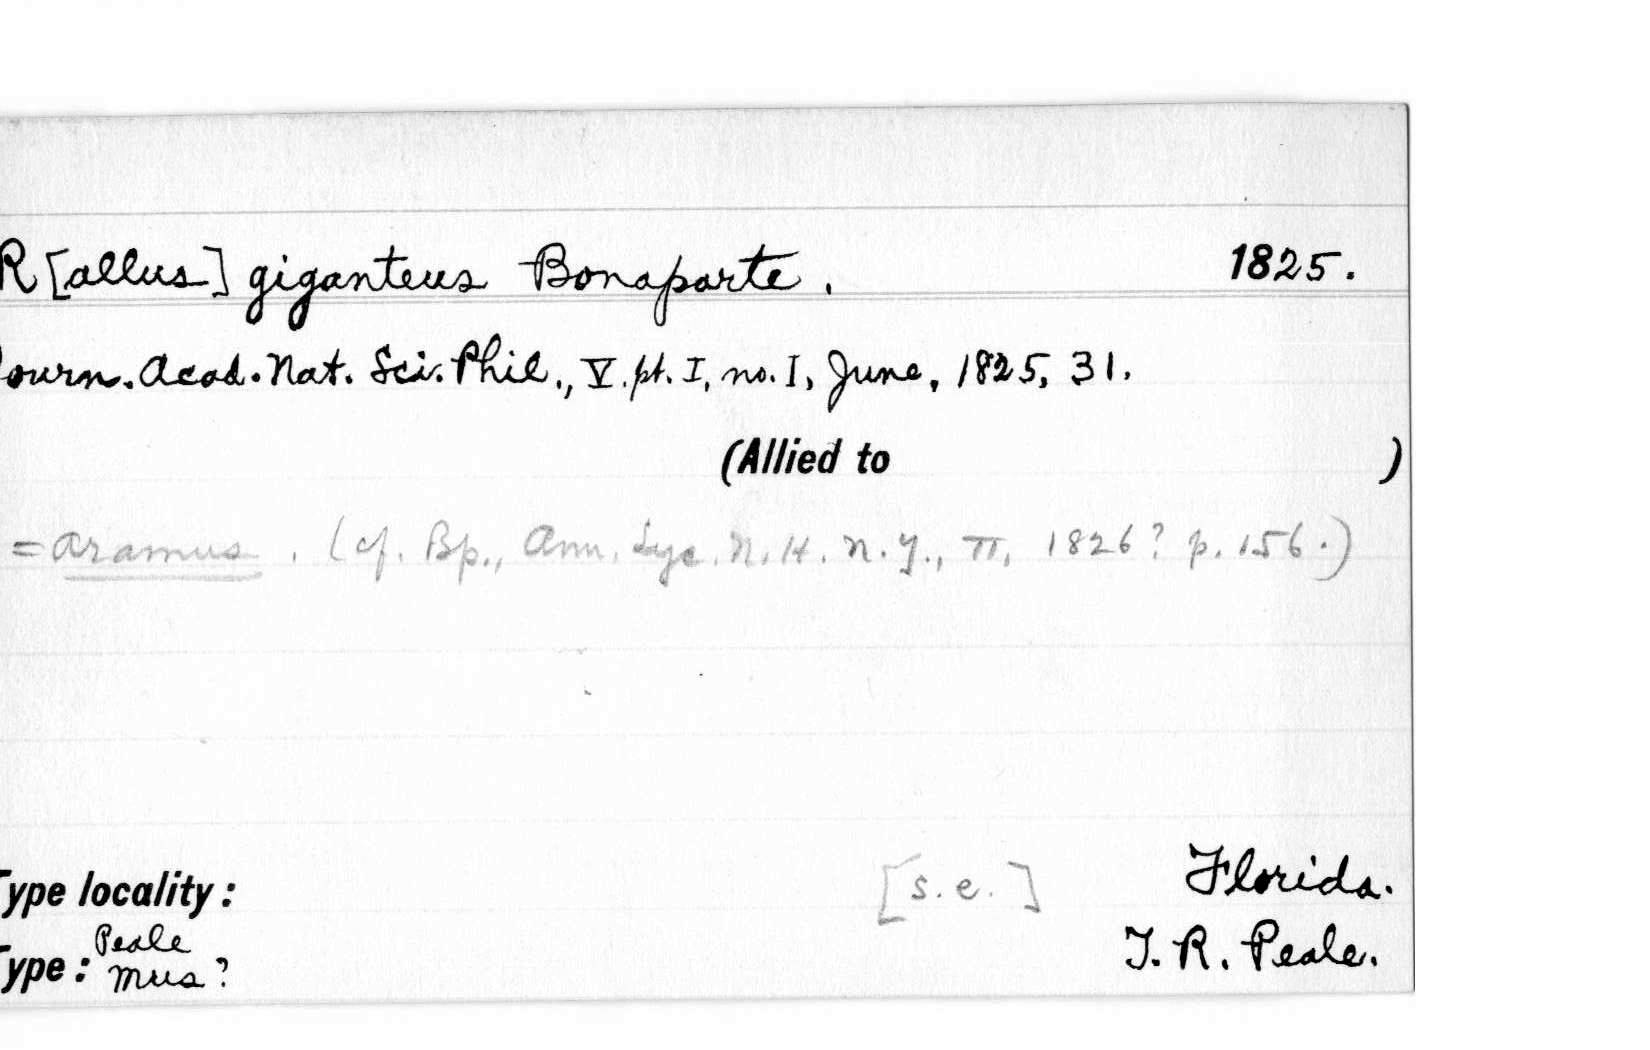 R[allus] giganteus Bonaparte. 1825.
Journ. Acad. Nat. Sci. Phil., V. pt. I, no. I, June, 1825, 31.
(Allied to )
= Aramus. (cf. Bp., Ann. Lyc. N. H. N. Y., II, 1826? p. 156.)
Type locality: [s.e.] Florida.
Type: Peale Mus? T. R. Peale.